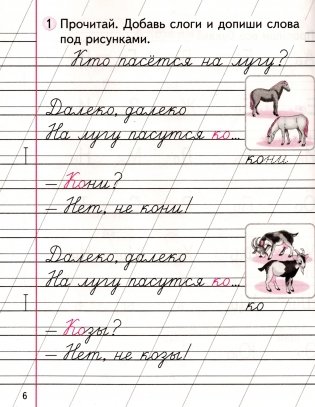 1 Прочитай. Добавь слоги и допиши слова
под рисунками.
Кто пасётся на лугу?
Далеко, далеко
На лугу пасутся ко...
кони
– Кони?
– Нет, не кони!
Далеко, далеко
На лугу пасутся ко...
ко
– Козы?
– Нет, не козы!
6